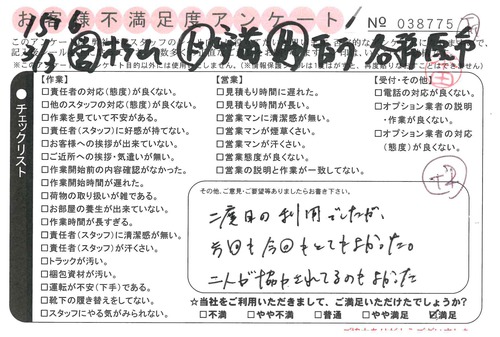 お客様不満足度アンケート
No 038775
【作業】
□責任者の対応(態度)が良くない。
□他のスタッフの対応(態度)が良くない。
□作業を見ていて不安がある。
□責任者(スタッフ)に好感が持てない。
□お客様への挨拶が出来ていない。
□ご近所への挨拶・気遣いが無い。
□作業開始前の内容確認がなかった。
□作業開始時間が遅れた。
□荷物の取り扱いが雑である。
□お部屋の養生が出来ていない。
□作業時間が長すぎる。
□責任者(スタッフ)に清潔感が無い。
□責任者(スタッフ)が汗くさい。
□トラックが汚い。
□梱包資材が汚い。
□運転が不安(下手)である。
□靴下の履き替えをしてない。
□スタッフにやる気がみられない。
チェックリスト
【営業】
□見積もり時間に遅れた。
□見積もり時間が長い。
□営業マンに清潔感が無い。
□営業マンが煙草くさい。
□営業マンが汗くさい。
□営業態度が良くない。
□営業の説明と作業が一致してない。
【受付・その他】
□電話の対応が良くない。
□オプション業者の説明
・作業が良くない。
□オプション業者の対応
(態度)が良くない。
その他、ご意見・ご要望等ありましたらお書き下さい。
二度目の利用でしたが、
前回も今回もとてもよかった。
二人が協力されてるのもよかった
☆当社をご利用いただきまして、ご満足いただけたでしょうか?
□不満 □やや不満 □普通 □やや満足 ☑満足